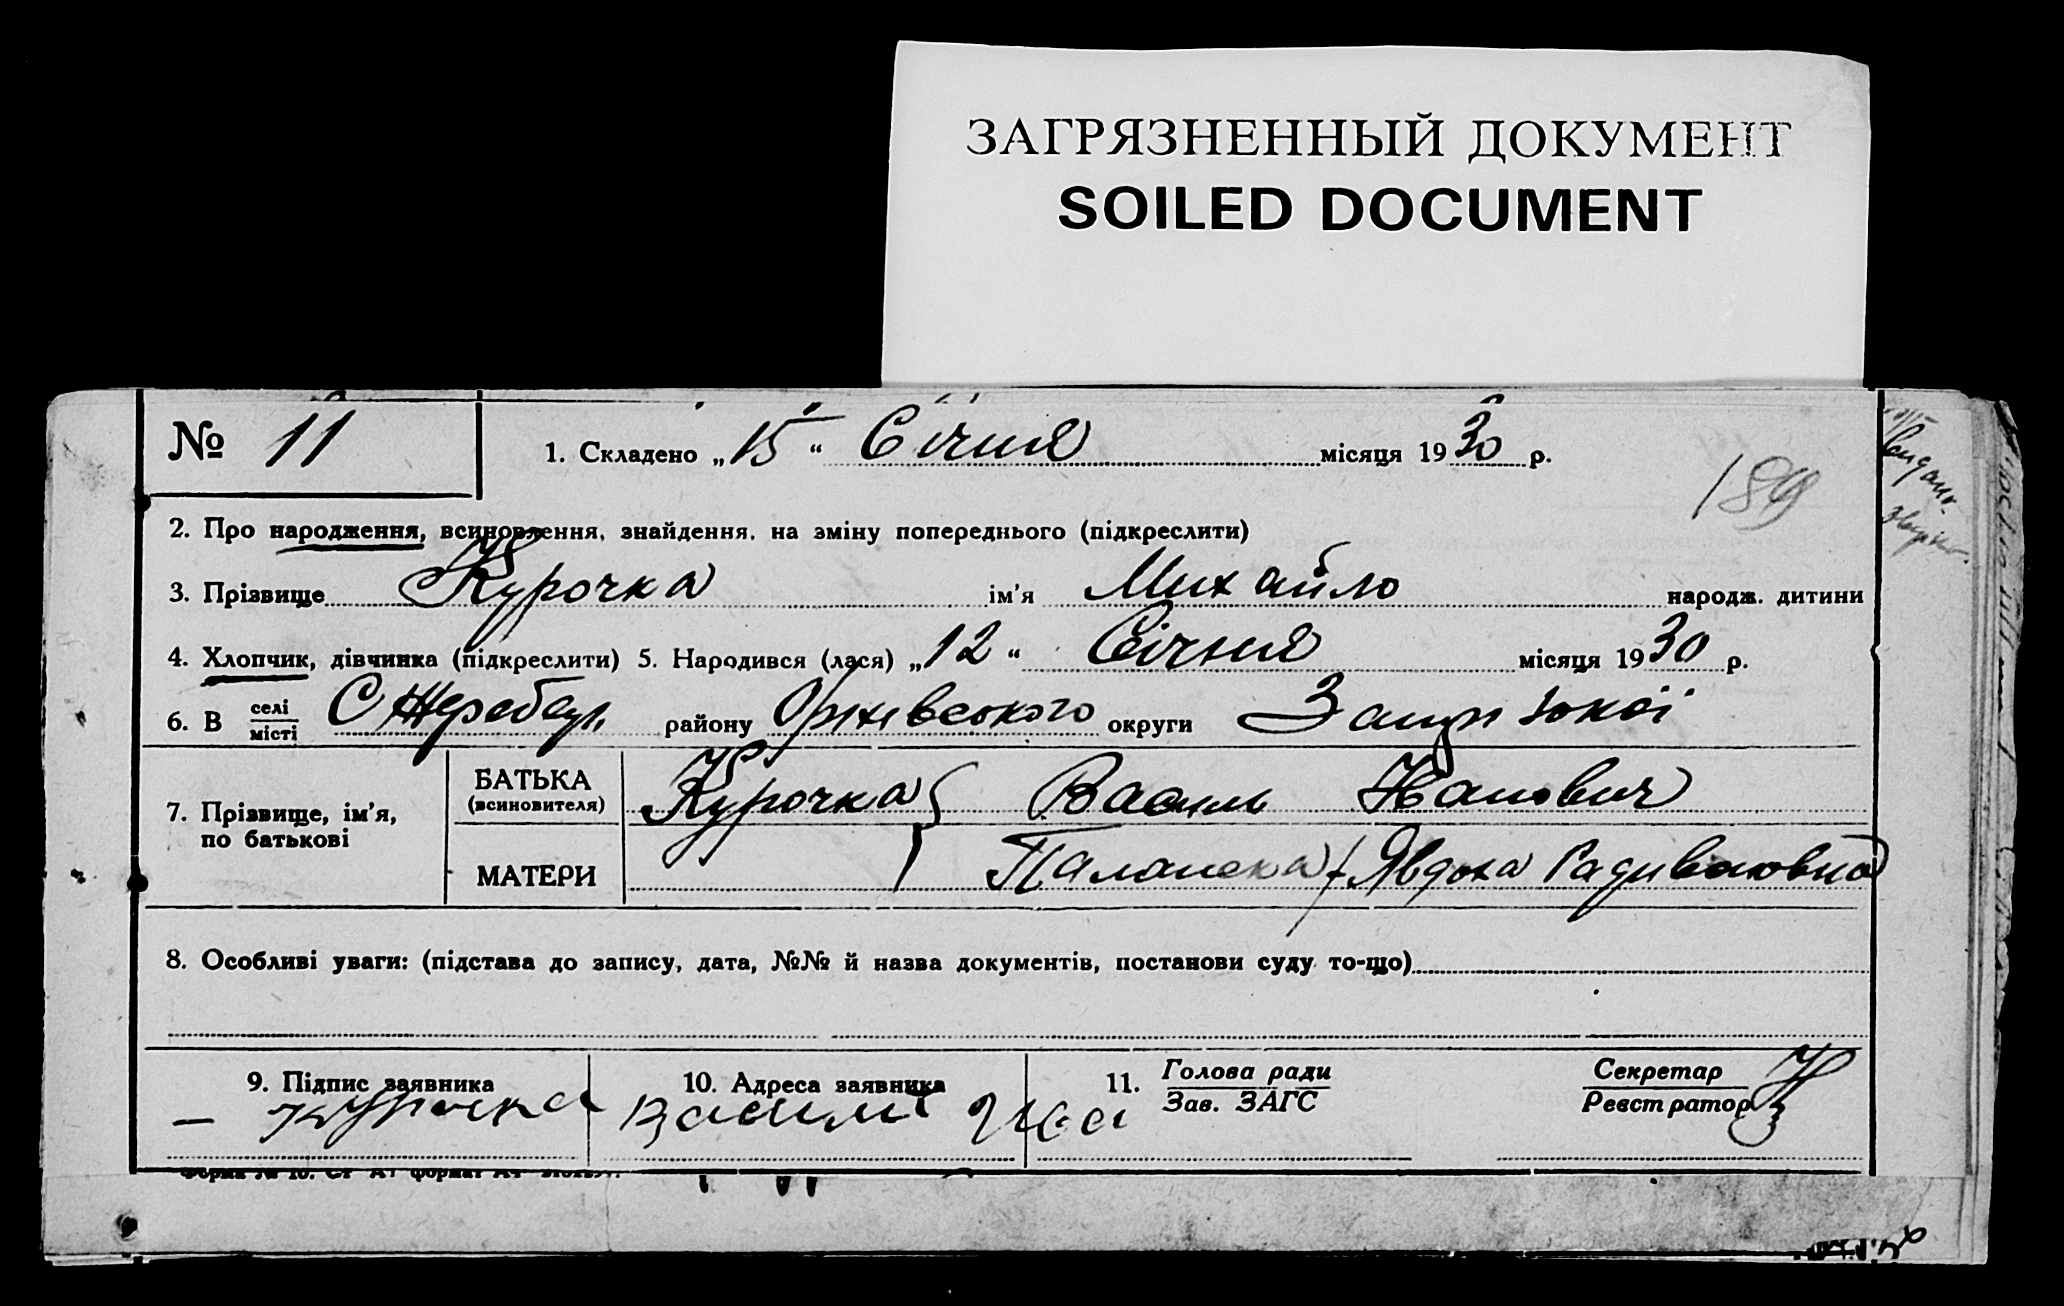 ЗАГРЯЗНЕННЫЙ ДОКУМЕНТ
SOILED DOCUMENT
№ 11
1. Складено „15“ Січня місяця 1930 р.
189
2. Про народження, всиновлення, знайдення, на зміну попереднього (підкреслити)
3. Прізвище Курочка ім'я Михайло народж. дитини
4. Хлопчик, дівчинка (підкреслити) 5. Народився (лася) „12“ Січня місяця 1930 р.
6. В селі місті С Жеребець району Оріхівського округи
7. Прізвище, ім'я, по батькові
БАТЬКА (всиновителя) Курочка Василь Иванович
МАТЕРИ Явдоха
8. Особливі уваги: (підстава до запису, дата, №№ й назва документів, постанови суду то-що)
9. Підпис заявника 10. Адреса заявника 11. Голова ради Зав. ЗАГС Секретар Реєстратор
Курочка Василь